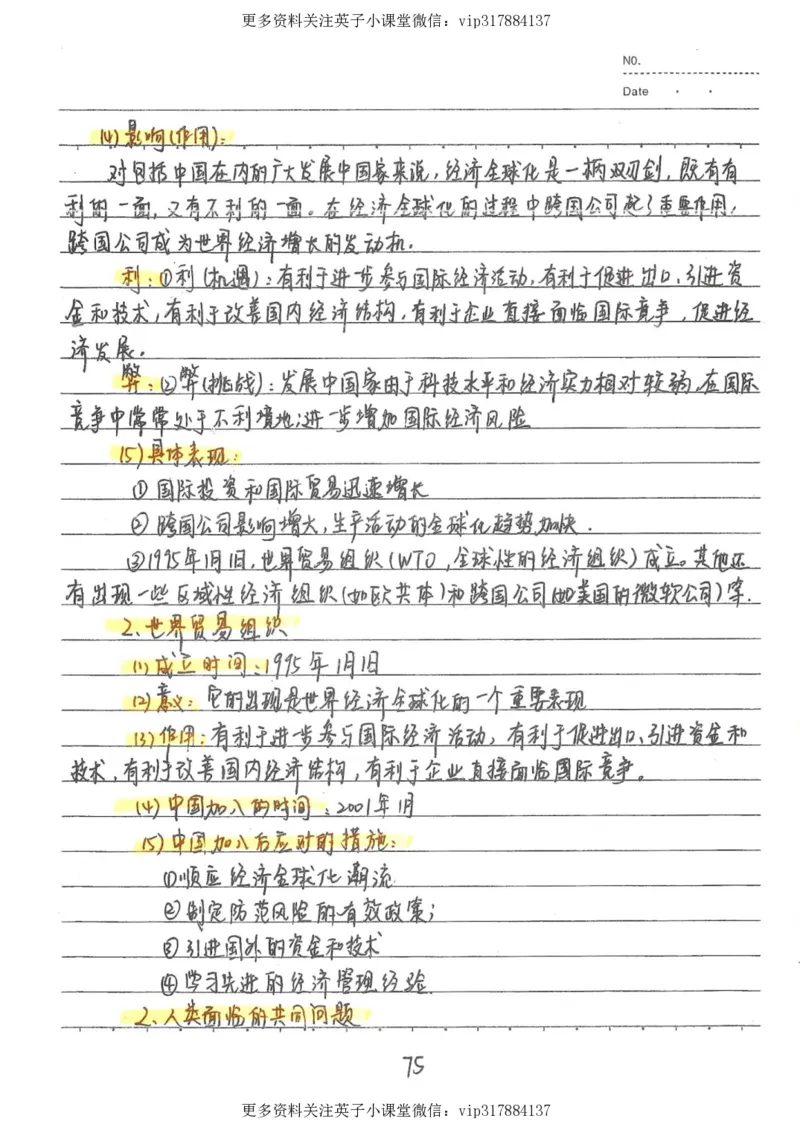 更多资料关注英子小课堂微信：vip317884137
NO.
Date
(4)影响(作用)：
对包括中国在内的广大发展中国家来说，经济全球化是一柄双刃剑，既有有
利的一面，又有不利的一面。在经济全球化的过程中跨国公司起了重要作用，
跨国公司成为世界经济增长的发动机。
利：①利(机遇)：有利于进一步参与国际经济活动，有利于促进出口、引进资
金和技术，有利于改善国内经济结构，有利于企业直接面临国际竞争，促进经
济发展。
弊：②弊(挑战)：发展中国家由于科技水平和经济实力相对较弱，在国际
竞争中常常处于不利境地；进一步增加国际经济风险
(5)具体表现：
①国际投资和国际贸易迅速增长
②跨国公司影响增大，生产活动的全球化趋势加快.
③1995年1月1日，世界贸易组织(WTO，全球性的经济组织)成立。其他还
有出现一些区域性经济组织(如欧共体)和跨国公司(如美国的微软公司)等.
2、世界贸易组织
(1)成立时间：1995年1月1日
(2)意义：它的出现是世界经济全球化的一个重要表现
(3)作用：有利于进一步参与国际经济活动，有利于促进出口、引进资金和
技术，有利于改善国内经济结构，有利于企业直接面临国际竞争。
(4)中国加入的时间：2001年1月
(5)中国加入后应对的措施：
①顺应经济全球化潮流
②制定防范风险的有效政策；
③引进国外的资金和技术
④学习先进的经济管理经验.
2、人类面临的共同问题
75
更多资料关注英子小课堂微信：vip317884137